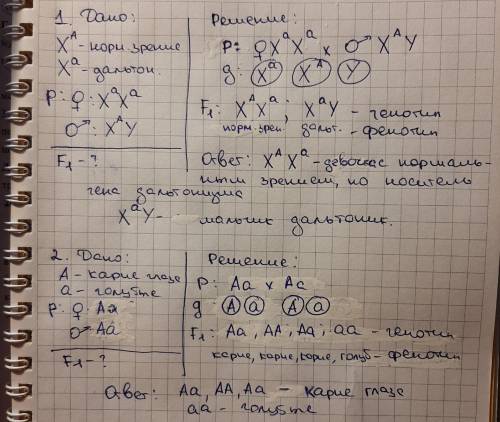 1. Дано:
Xᴬ - норм. зрение
Xᵃ - дальтон.
P: ♀: XᵃXᵃ
♂: XᴬY
F₁ - ?
Решение:
P: ♀XᵃXᵃ x ♂ XᴬY
g: Xᵃ Xᴬ Y
F₁: XᴬXᵃ; XᵃY - генотип
норм. зрен. дальт. - фенотип
Ответ: XᴬXᵃ - девочка с нормаль-
ным зрением, но носитель
гена дальтонизма
XᵃY - мальчик дальтоник.
2. Дано:
A - карие глаза
a - голубые
P: ♀ Aa
♂ Aa
F₁ - ?
Решение:
P: Aa x Aa
g: A a A a
F₁: Aa, AA, Aa; aa - генотип
карие, карие, карие, голуб - фенотип
Ответ: Aa, AA, Aa - карие глаза
aa - голубые